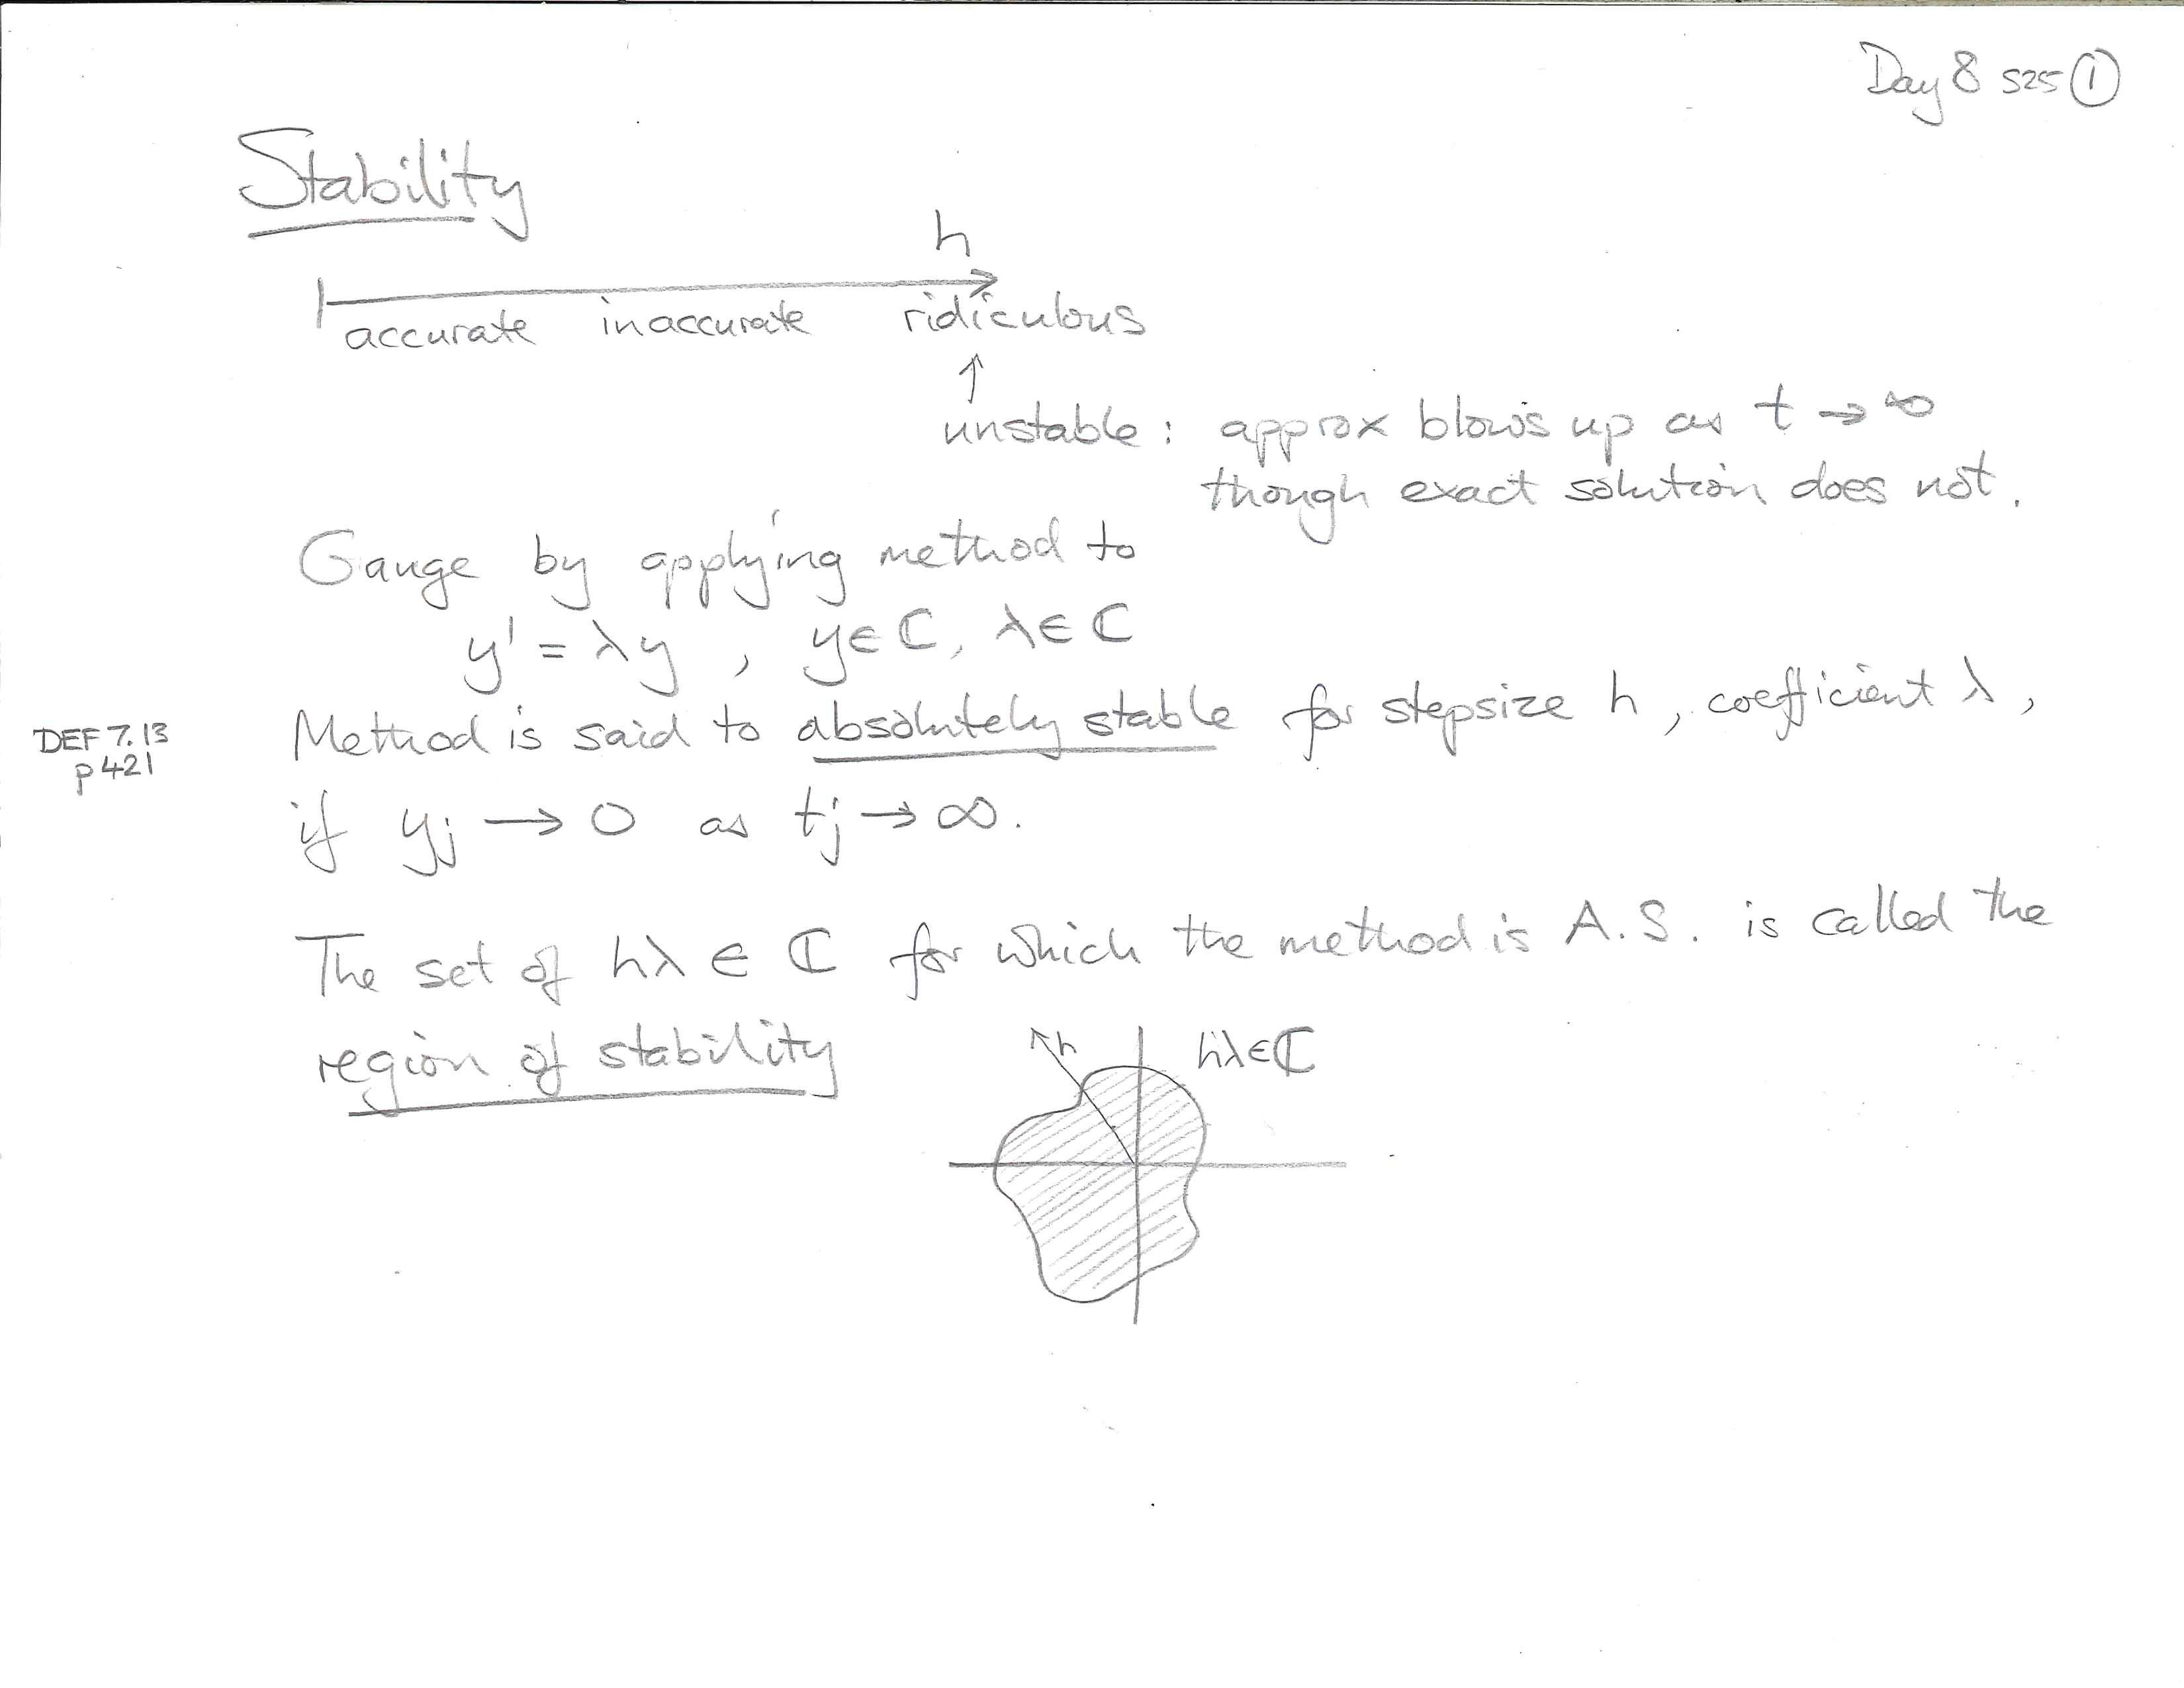 Day 8 S25 ①
Stability
h
accurate inaccurate ridiculous
↑
unstable: approx blows up as t → ∞
though exact solution does not.
Gauge by applying method to
y' = λy , y∈ℂ, λ∈ℂ
DEF 7.13
p421
Method is said to absolutely stable for stepsize h, coefficient λ,
if yj → 0 as tj → ∞.
The set of hλ ∈ ℂ for which the method is A.S. is called the
region of stability
h
hλ∈ℂ